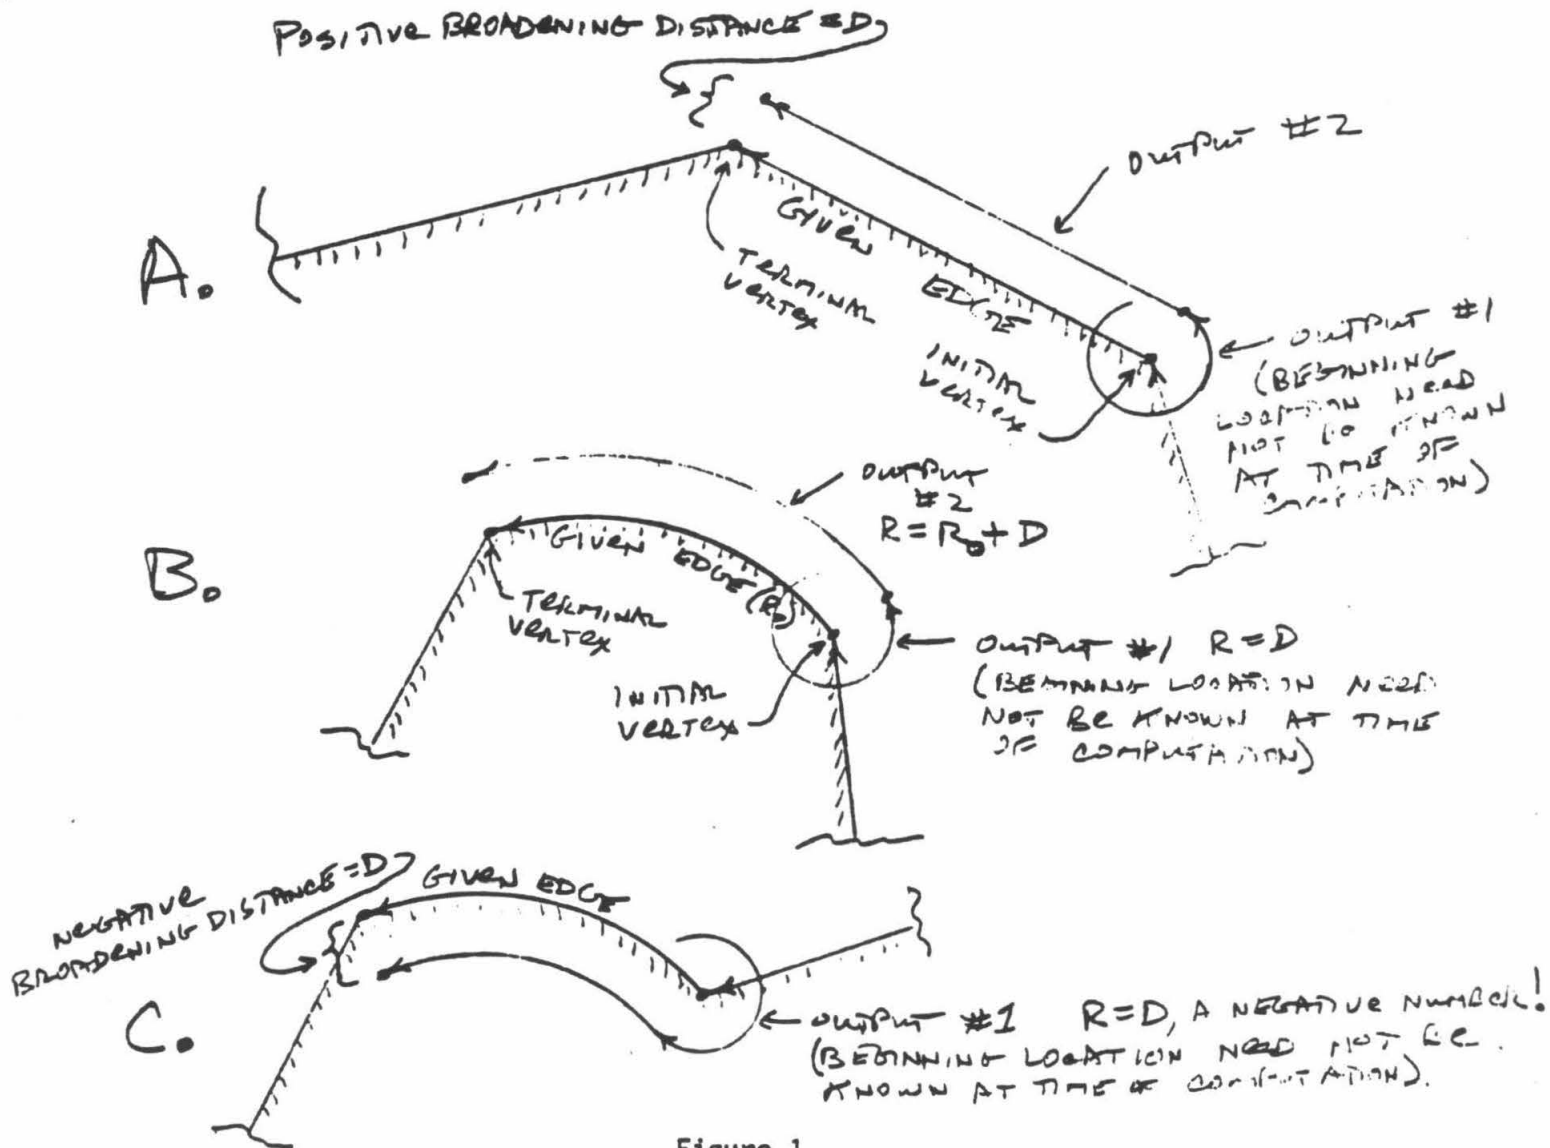 POSITIVE BROADENING DISTANCE = D
OUTPUT #2
A.
GIVEN
EDGE
TERMINAL
VERTEX
INITIAL
VERTEX
OUTPUT #1
(BEGINNING
LOCATION NEED
NOT BE KNOWN
AT TIME OF
COMPUTATION)
B.
OUTPUT
#2
R = R₀ + D
GIVEN
EDGE (R₀)
TERMINAL
VERTEX
INITIAL
VERTEX
OUTPUT #1 R = D
(BEGINNING LOCATION NEED
NOT BE KNOWN AT TIME
OF COMPUTATION)
C.
NEGATIVE
BROADENING DISTANCE = D
GIVEN EDGE
OUTPUT #1 R = D, A NEGATIVE NUMBER!
(BEGINNING LOCATION NEED NOT BE
KNOWN AT TIME OF COMPUTATION).
Figure 1